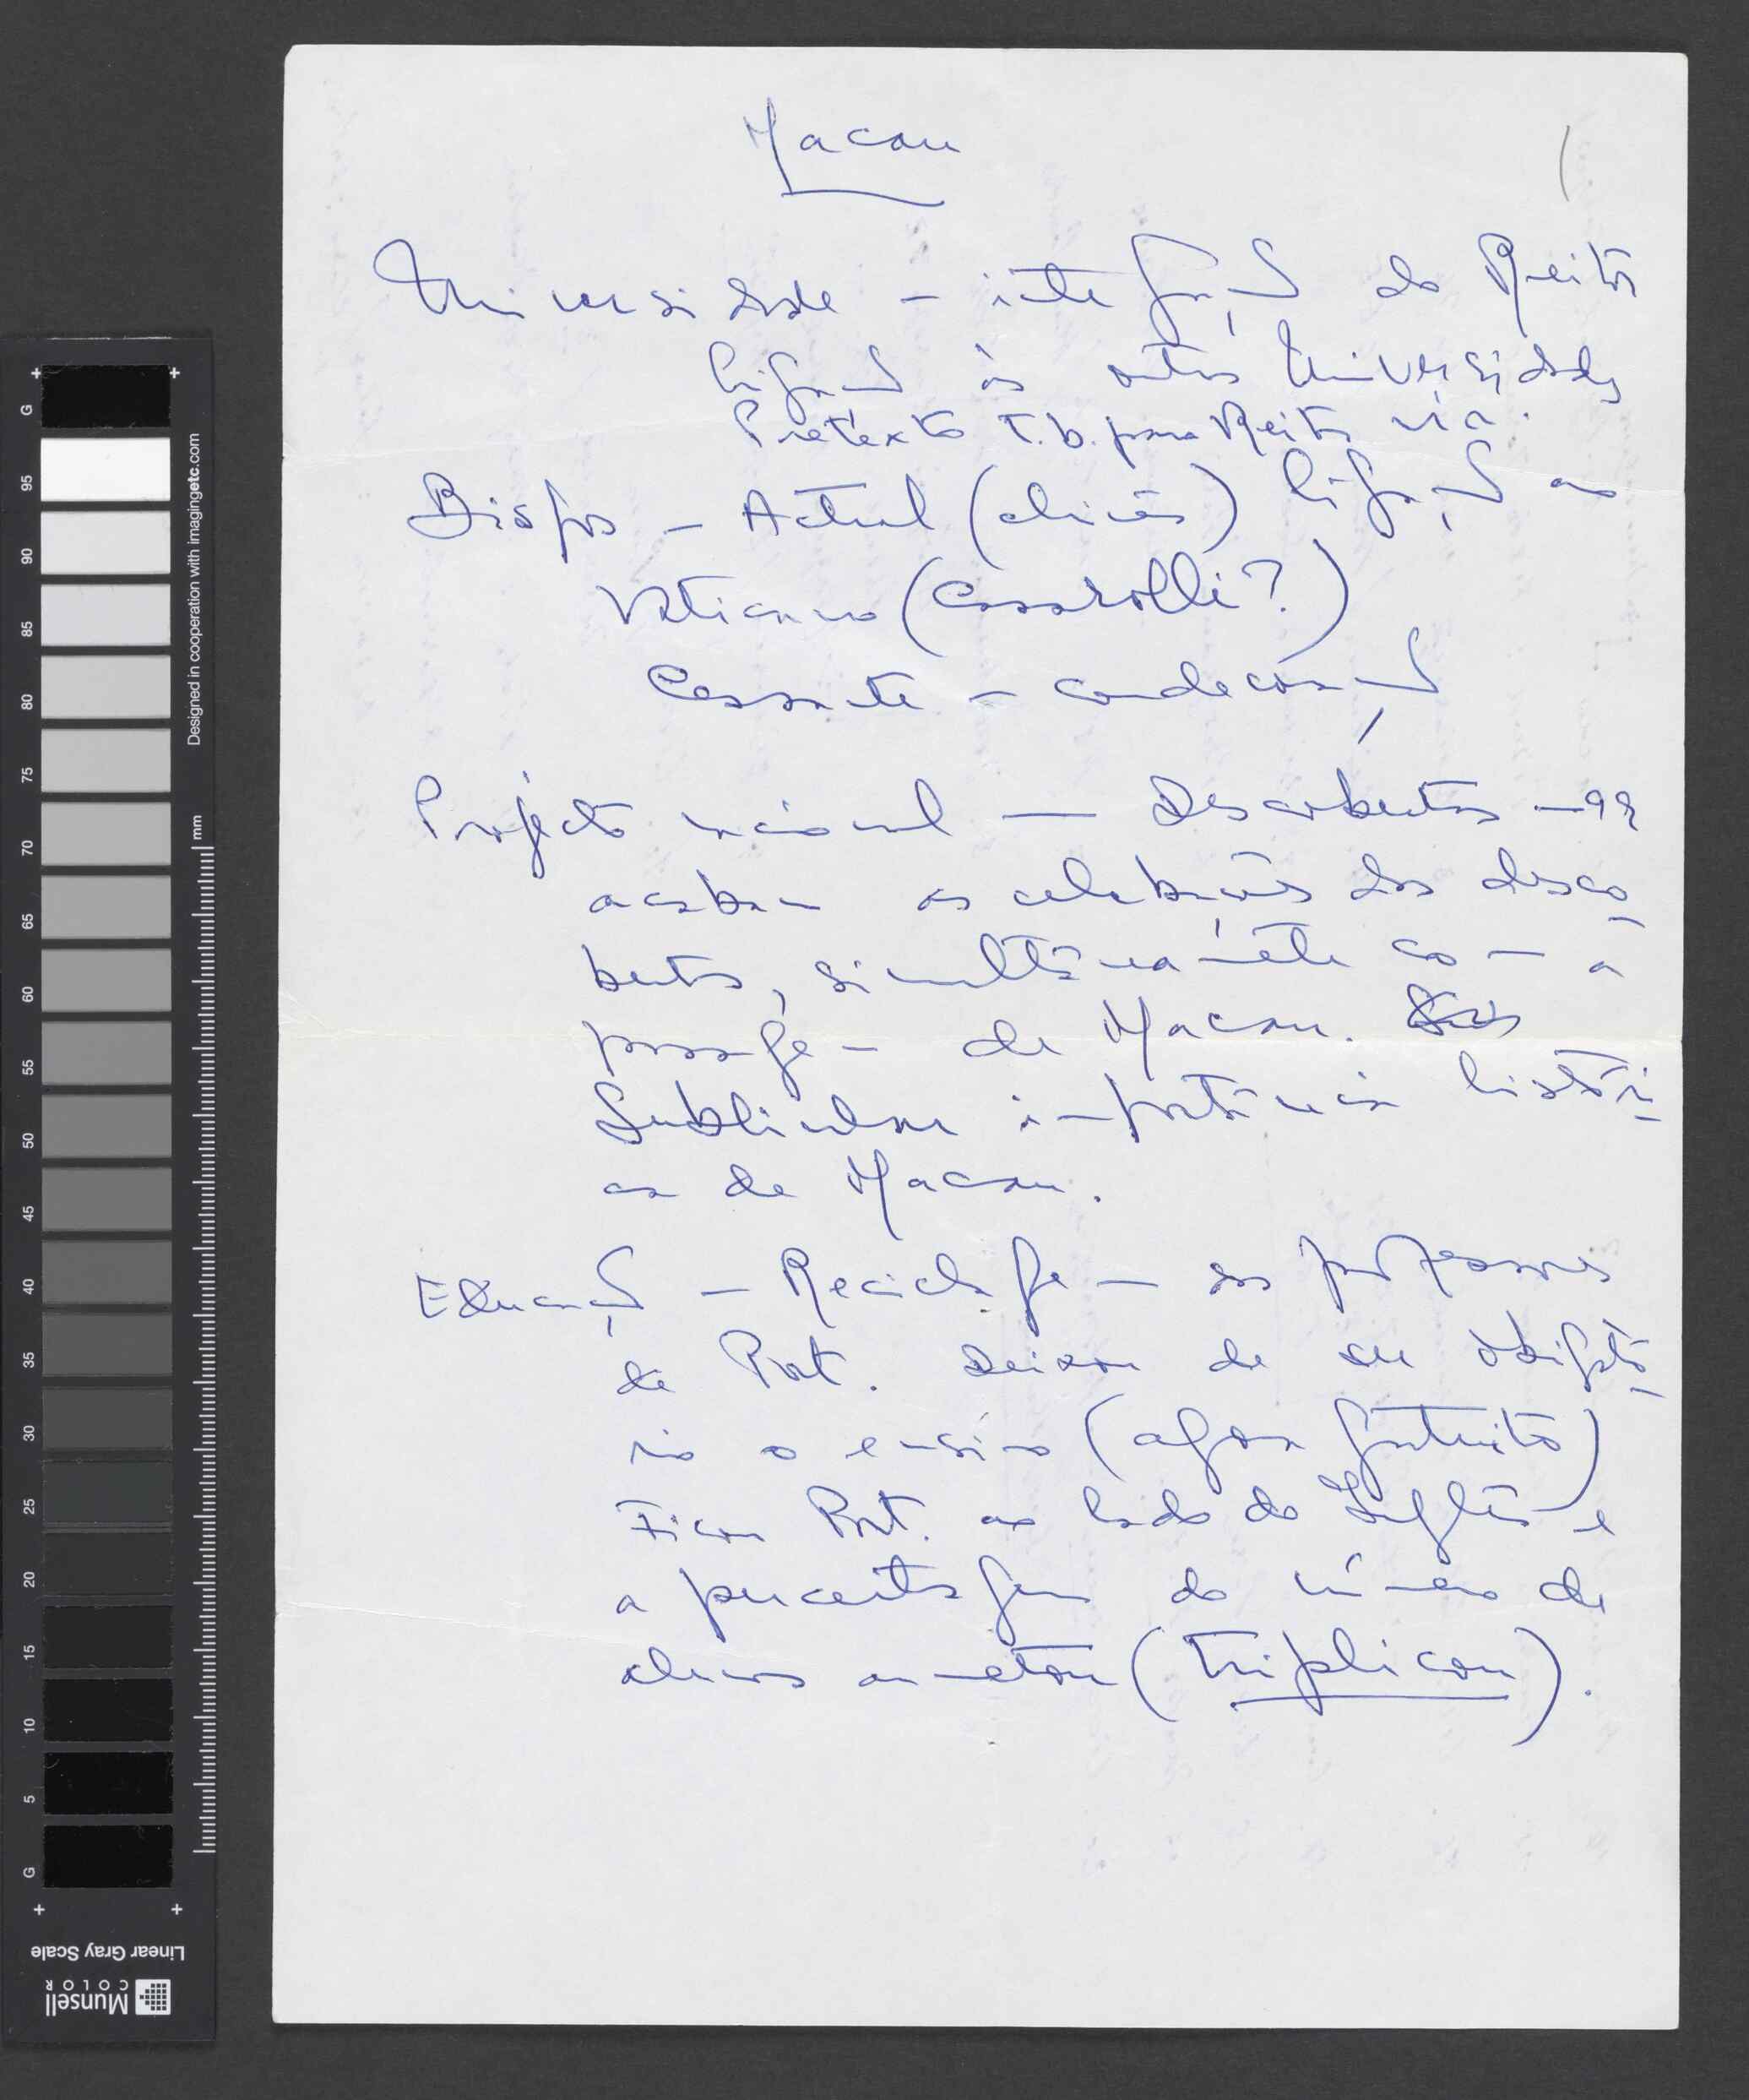 Macau
Universidade - integração do Reitor
ligação às outras Universidades
Pretexto t.b. para Reitor vir.
Bispos - Actual (chinês) ligação ao
Vaticano (Casarolli?)
Cessante - condecoração
Projecto nacional — Descobertas - 99
acabam as celebrações dos desco-
bertos, simultâneamente com a
passagem de Macau.
Sublinhar importância históri-
ca de Macau.
Educação - Reciclagem dos professores
de Port. Deixou de ser obrigató-
rio o ensino (agora gratuito)
Ficou Port. ao lado do Inglês e
a percentagem do número de
alunos aumentou (triplicou).
G
95
90
85
80
75
70
65
60
55
50
45
40
35
30
25
20
15
10
5
G
mm
Designed in cooperation with imagingetc.com
Linear Gray Scale
Munsell
COLOR